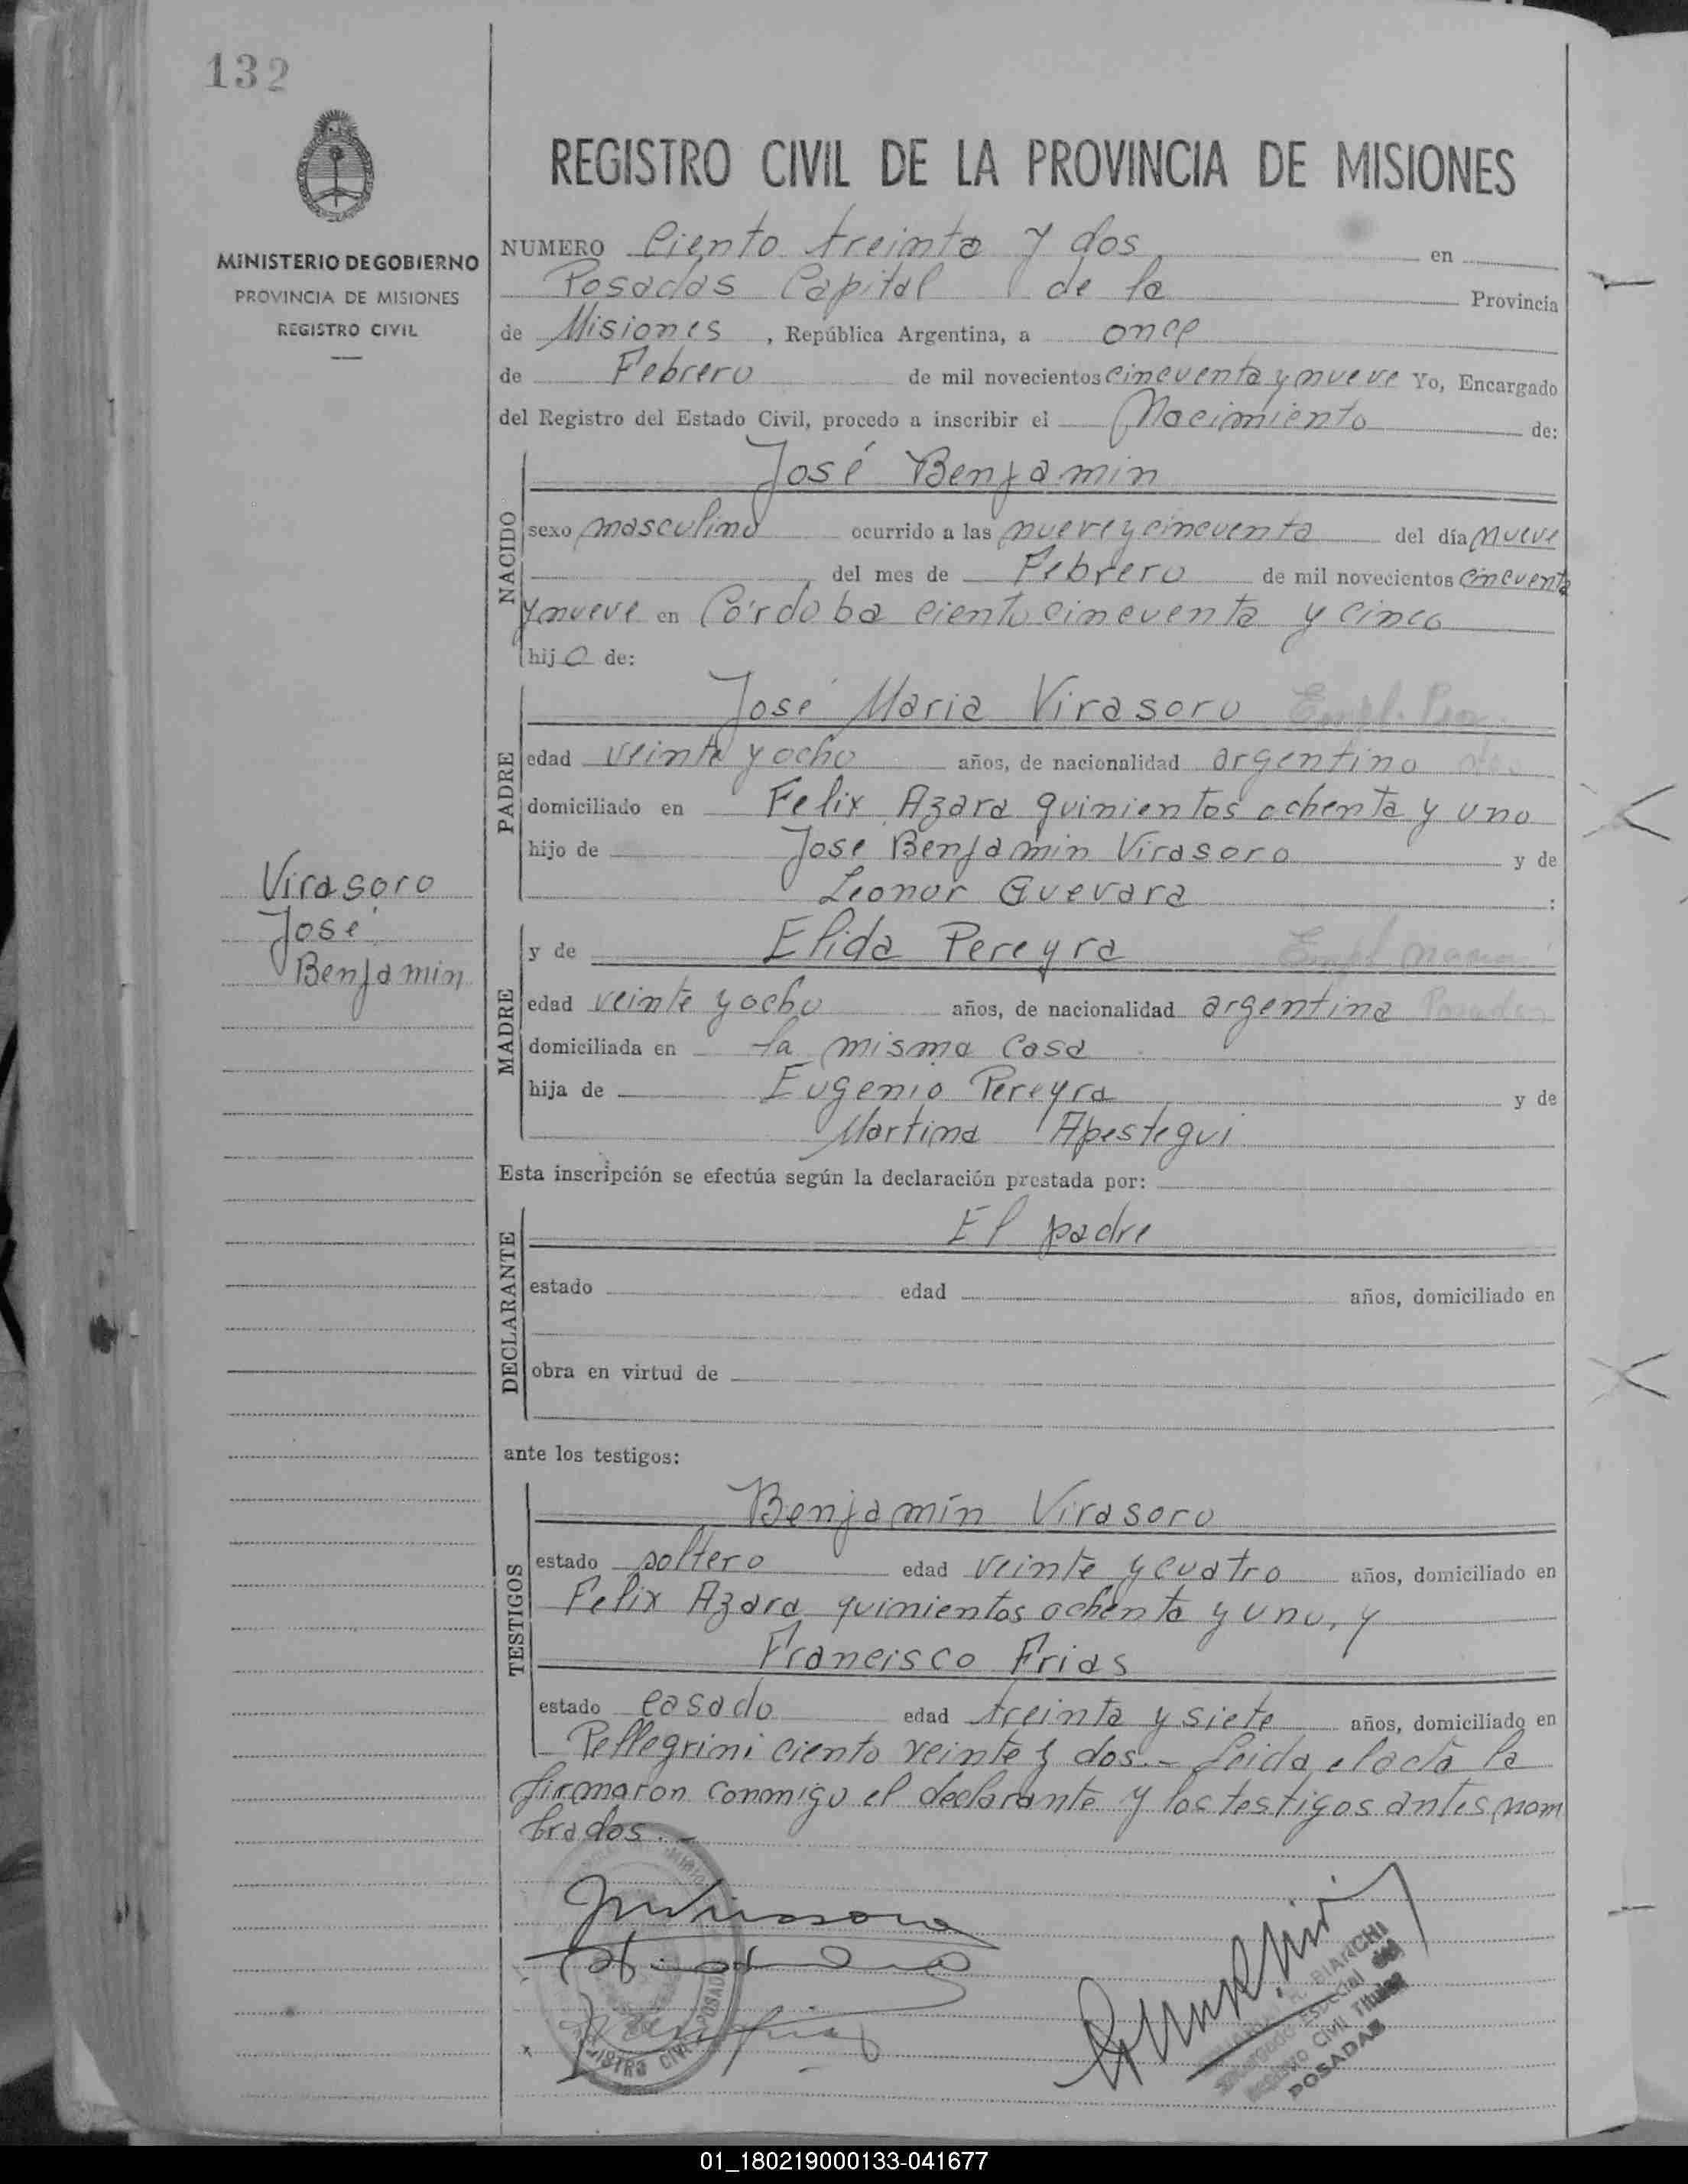 132
MINISTERIO DE GOBIERNO
PROVINCIA DE MISIONES
REGISTRO CIVIL
REGISTRO CIVIL DE LA PROVINCIA DE MISIONES
NUMERO Ciento treinta y dos en
Posadas Capital de la Provincia
de Misiones, República Argentina, a once
de Febrero de mil novecientos cincuenta y nueve Yo, Encargado
del Registro del Estado Civil, procedo a inscribir el Nacimiento de:
NACIDO
José Benjamin
sexo masculino ocurrido a las nueve y cincuenta del día nueve
del mes de Febrero de mil novecientos cincuenta
y nueve en Córdoba ciento cincuenta y cinco
hijo de:
PADRE
José Maria Virasoro Empl.
edad veinte y ocho años, de nacionalidad argentino
domiciliado en Felix Azara quinientos ochenta y uno
hijo de José Benjamin Virasoro y de
Leonor Guevara :
Virasoro
José
Benjamin
MADRE
y de Elida Pereyra Empl
edad veinte y ocho años, de nacionalidad argentina Posadas
domiciliada en la misma casa
hija de Eugenio Pereyra y de
Martina Apestegui
Esta inscripción se efectúa según la declaración prestada por:
DECLARANTE
El padre
estado edad años, domiciliado en
obra en virtud de
ante los testigos:
TESTIGOS
Benjamín Virasoro
estado soltero edad veinte y cuatro años, domiciliado en
Felix Azara quinientos ochenta y uno, y
Francisco Frias
estado casado edad treinta y siete años, domiciliado en
Pellegrini ciento veinte y dos.- Leida el acta la
firmaron conmigo el declarante y los testigos antes nom
brados.-
BIANCHI
Encargado Especial del
Registro Civil Titular
POSADAS
REGISTRO CIVIL POSADAS
01_180219000133-041677